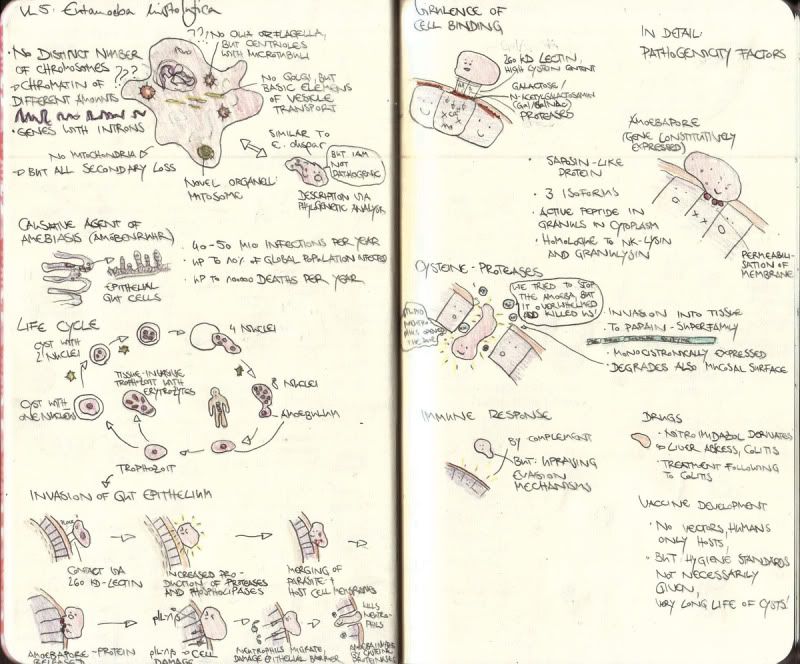 VL 5: Entamoeba histolytica
• NO DISTINCT NUMBER
OF CHROMOSOMES ???
→ CHROMATIN OF
DIFFERENT AMOUNTS
• GENES WITH INTRONS
??? NO CILIA OR FLAGELLA,
BUT CENTRIOLES
WITH MICROTUBULI
NO GOLGI, BUT
BASIC ELEMENS
OF VESICLE
TRANSPORT
NO MITOCHONDRIA
→ BUT ALL SECONDARY LOSS
NOVEL ORGANELL:
MITOSOME
SIMILAR TO
E. dispar
BUT I AM
NOT
PATHOGENIC
DESCRIPTION VIA
PHYLOGENETIC ANALYSIS
CAUSATIVE AGENT OF
AMEBIASIS (AMÖBENRUHR)
EPITHELIAL
GUT CELLS
• 40-50 MIO INFECTIONS PER YEAR
• UP TO 10% OF GLOBAL POPULATION INFECTED
• UP TO 100000 DEATHS PER YEAR
LIFE CYCLE
CYST WITH
2 NUCLEI
4 NUCLEI
TISSUE-INVASIVE
TROPHOZOIT WITH
ERYTROZYTES
8 NUCLEI
CYST WITH
ONE NUCLEUS
AMOEBULUM
TROPHOZOIT
INVASION OF GUT EPITHELIUM
CONTACT VIA
260 KD-LECTIN
INCREASED PRO-
DUCTION OF PROTEASES
AND PHOSPHOLIPASES
MERGING OF
PARASITE +
HOST CELL MEMBRANES
AMOEBAPORE-PROTEIN
RELEASED
→ CELL
DAMAGE
NEUTROPHILS MIGRATE,
DAMAGE EPITHELIAL BARRIER
KILLS
NEUTRO-
PHILS
BY CYSTEINE
PROTEINASES
VIRULENCE OF
CELL BINDING
IN DETAIL:
PATHOGENICITY FACTORS
260 KD LECTIN,
HIGH CYSTEIN CONTENT
GALACTOSE/
N-ACETYLGALACTOSAMIN
(Gal/GalNAc)
PROTEASES
AMOEBAPORE
(GENE CONSTITUTIVELY
EXPRESSED)
• SAPOSIN-LIKE
PROTEIN
• 3 ISOFORMS
• ACTIVE PEPTIDE IN
GRANULS IN CYTOPLASM
• HOMOLOGUE TO NK-LYSIN
AND GRANULYSIN
PERMEABILI-
SATION OF
MEMBRANE
CYSTEINE-PROTEASES
WE TRIED TO STOP
THE AMOEBA, BUT
IT OVERWHELMED
AND KILLED US!
• INVASION INTO TISSUE
• TO PAPAIN-SUPERFAMILY
• MONOCISTRONICALLY EXPRESSED
• DEGRADES ALSO MUCOSAL SURFACE
IMMUNE RESPONSE
BY COMPLEMENT
BUT: UPRAVING
EVASION
MECHANISMS
DRUGS
• NITROIMIDAZOL DERIVATES
→ LIVER ABSCESS, COLITIS
• TREATMENT FOLLOWING
TO COLITIS
VACCINE DEVELOPMENT
• NO VECTORS, HUMANS
ONLY HOSTS,
• BUT: HYGIENE STANDARDS
NOT NECESSARILY
GIVEN,
VERY LONG LIFE OF CYSTS!